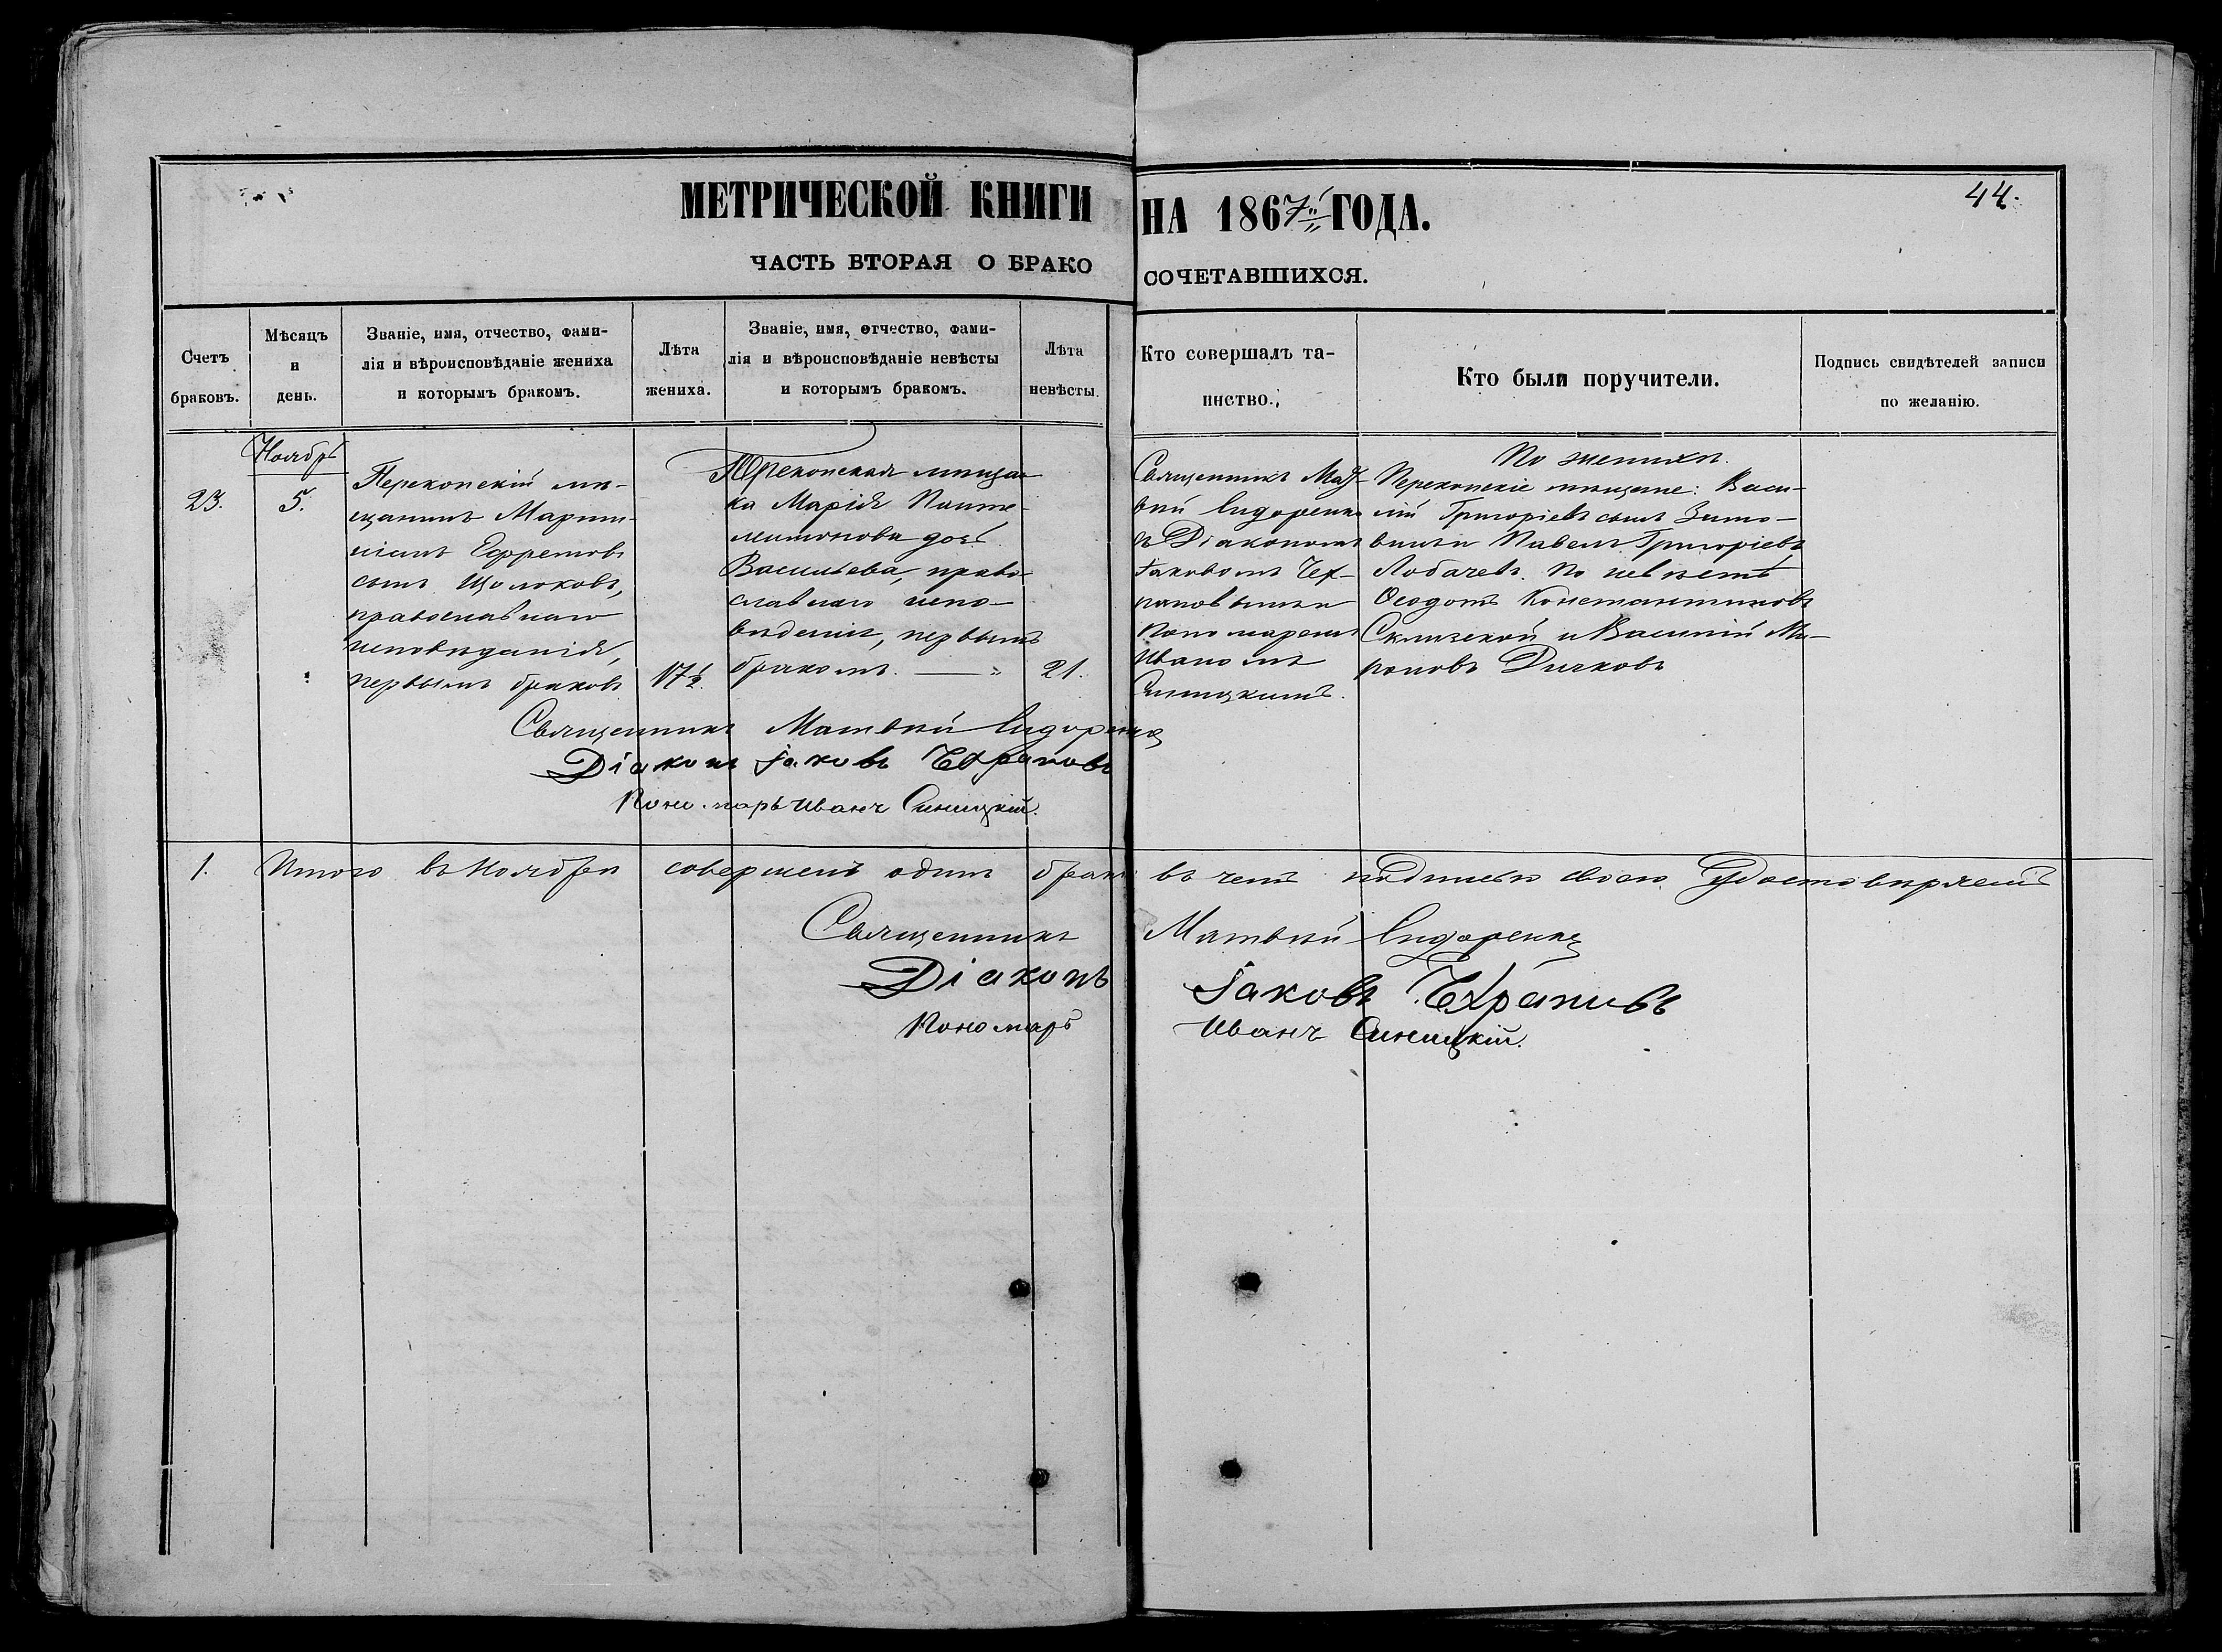 МЕТРИЧЕСКОЙ КНИГИ НА 1867 ГОДА.
44.
ЧАСТЬ ВТОРАЯ О БРАКОСОЧЕТАВШИХСЯ.
Счетъ
браковъ.
Мѣсяцъ
и
день.
Званіе, имя, отчество, фами-
лія и вѣроисповѣданіе жениха
и которымъ бракомъ.
Лѣта
жениха.
Званіе, имя, отчество, фами-
лія и вѣроисповѣданіе невѣсты
и которымъ бракомъ.
Лѣта
невѣсты.
Кто совершалъ та-
инство.
Кто были поручители.
Подпись свидѣтелей записи
по желанію.
Ноябрь
23.
5.
Перекопскій мѣ-
щанинъ
Ефремовъ
сынъ Щолоковъ,
православнаго
исповѣданія,
первымъ бракомъ
17½.
Перекопская мѣщан-
ка Марія Панте-
лимонова дочь
Васильева, право-
славнаго испо-
вѣданія, первымъ
бракомъ. — "
21.
Священникъ Мат-
вѣй Сидоренко
съ Діакономъ
Іаковомъ Чех-
рановымъ и
Пономаремъ
Иваномъ
Синицкимъ.
По женихѣ.
Перекопскіе мѣщане: Васи-
лій Григорьевъ сынъ
и Павелъ Григорьевъ
Лобачевъ. По невѣстѣ
Ѳеодотъ Константиновъ
и Василій Ми-
роновъ Дичковъ
Священникъ Матвѣй Сидоренко
Діаконъ Іаковъ Чехрановъ
Пономарь Иванъ Синицкій.
1. Итого въ Ноябрѣ совершенъ одинъ бракъ въ чемъ подписью своею удостовѣряемъ
Священникъ Матвѣй Сидоренко
Діаконъ Іаковъ Чехрановъ
Пономарь Иванъ Синицкій.